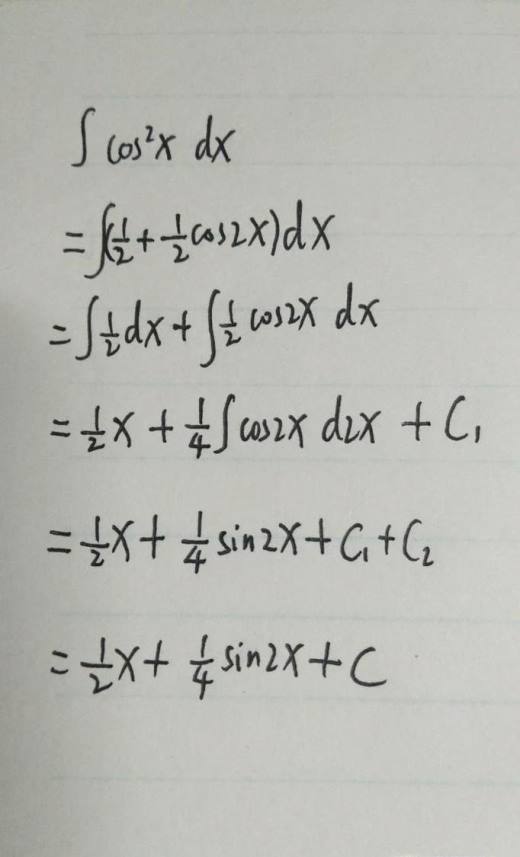 ∫ cos²x dx
= ∫(1/2 + 1/2 cos2x)dx
= ∫ 1/2 dx + ∫ 1/2 cos2x dx
= 1/2 x + 1/4 ∫ cos2x d2x + C₁
= 1/2 x + 1/4 sin2x + C₁ + C₂
= 1/2 x + 1/4 sin2x + C